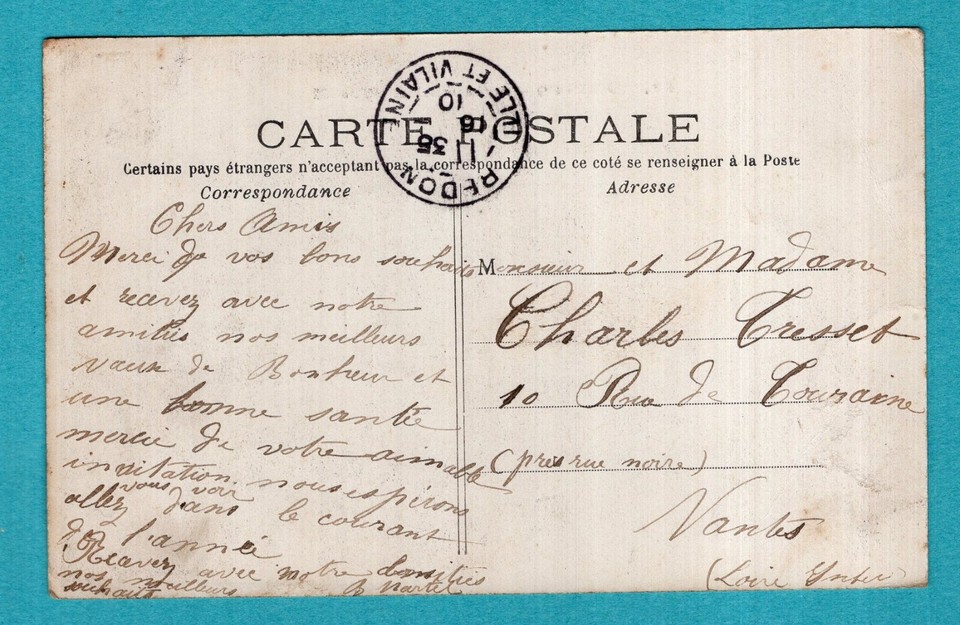 CARTE POSTALE
Certains pays étrangers n'acceptant pas la correspondance de ce coté se renseigner à la Poste
Correspondance
Adresse
REDON
ILLE ET VILAINE
11 35
16
10
Chers Amis
Merci de vos bons souhaits
et recevez avec notre
amitiés nos meilleurs
vœux de Bonheur et
une bonne santé
mercie de votre aimable
invitation. nous espirons
vous voir
allez dans le courant
de l'année
Recevez avec notre amitiés
nos meilleurs
souhaits
Monsieur et Madame
Charles Tresset
10 Rue de Touraine
(pres rue noire)
Nantes
(Loire Infer)